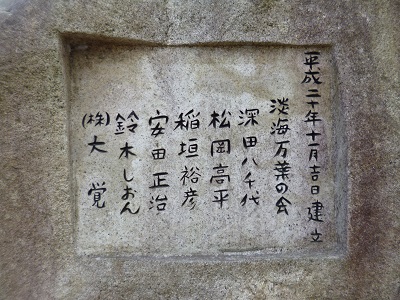 平成二十年十一月吉日建立
淡海万葉の会
深田八千代
松岡高平
稲垣裕彦
安田正治
鈴木しおん
(株)大覚